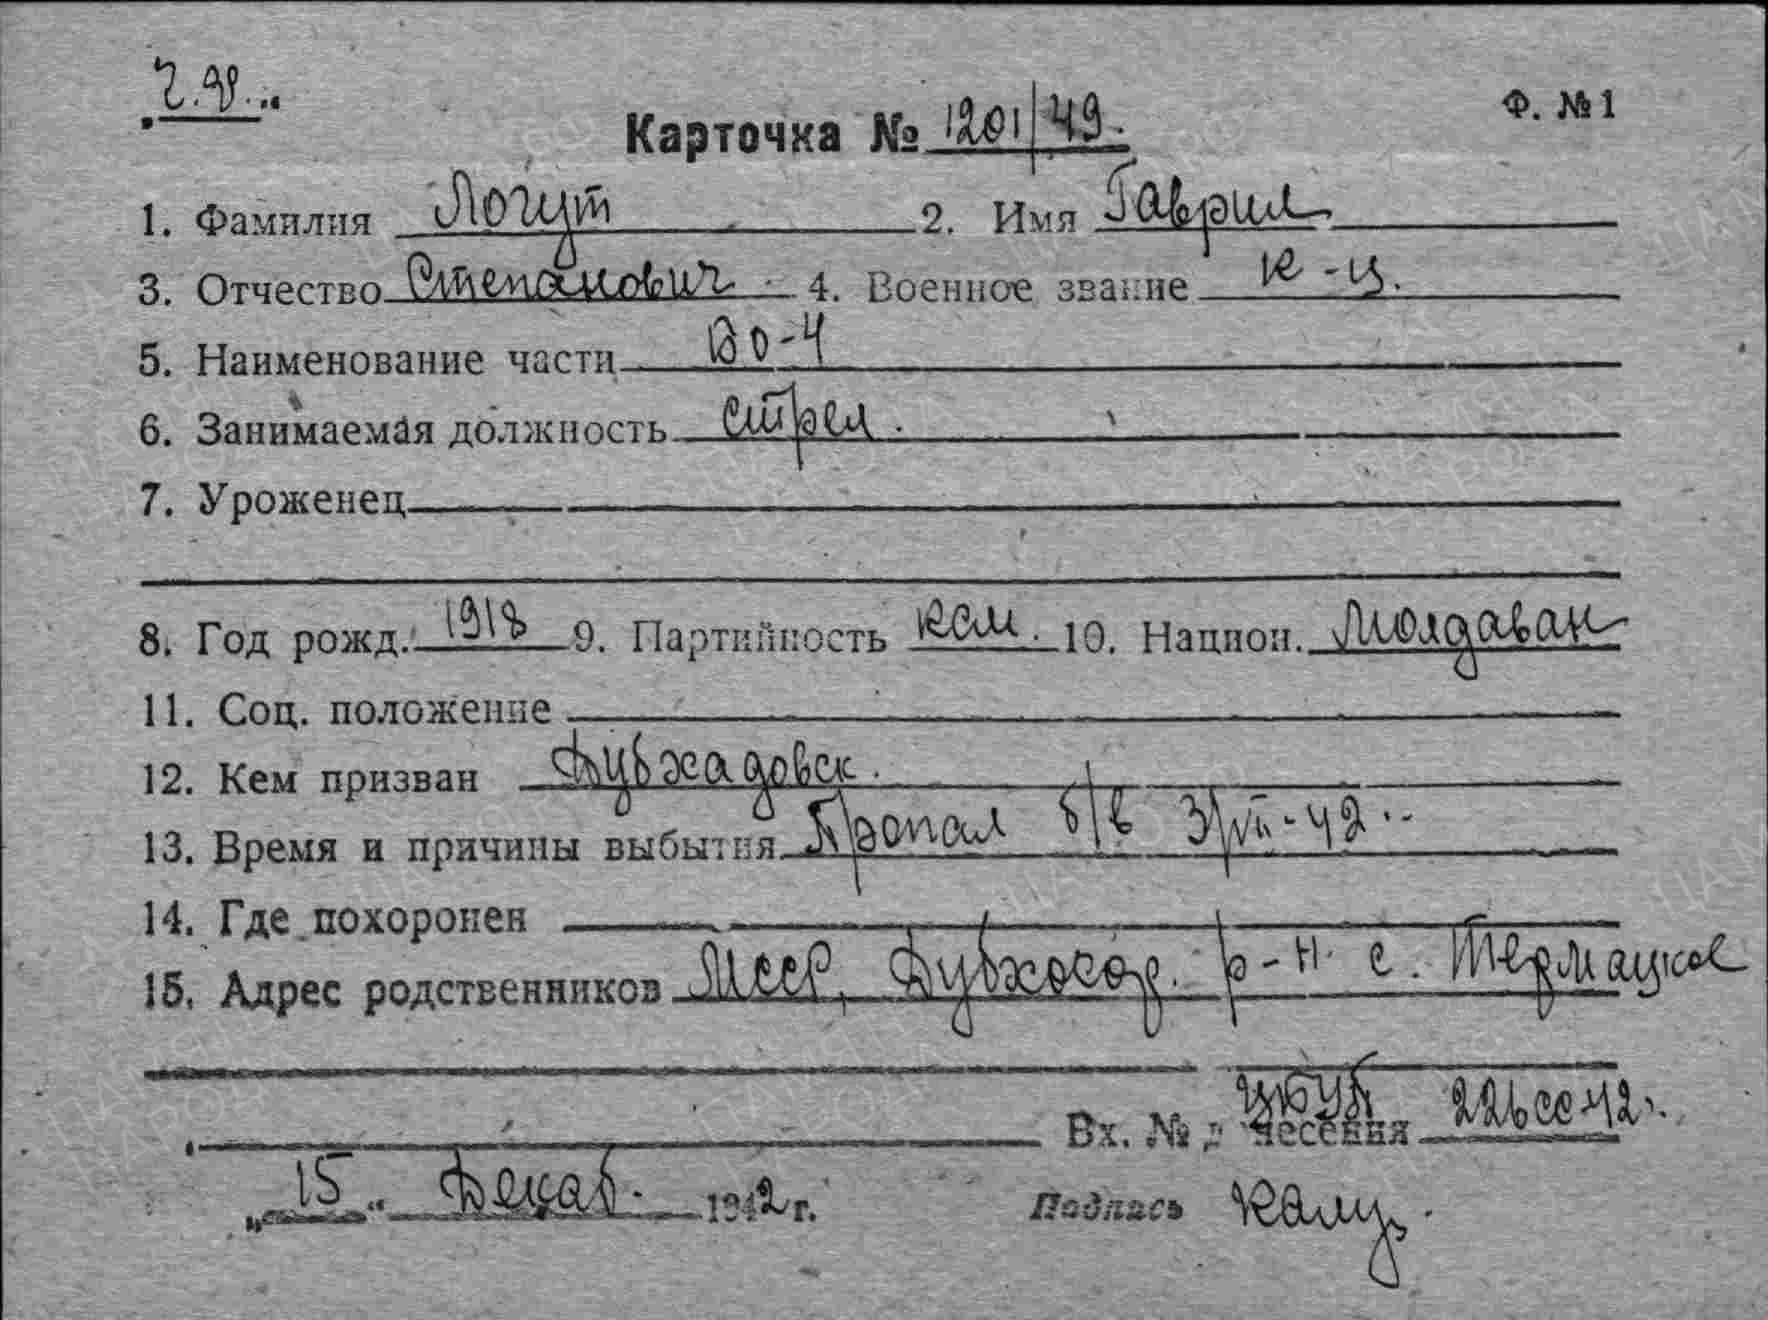 Ф. № 1
Карточка № 1201/49.
1. Фамилия Логут 2. Имя Гаврил
3. Отчество Степанович 4. Военное звание к-ц.
5. Наименование части 
6. Занимаемая должность стрел.
7. Уроженец
8. Год рожд. 1918 9. Партийность ксм. 10. Национ. Молдаван
11. Соц. положение
12. Кем призван Дубхадовск.
13. Время и причины выбытия Пропал б/в 3/VII-42
14. Где похоронен
15. Адрес родственников МССР, Дубхосар. р-н. с. Термацкое
Вх. № донесения 226сс-42
„15“ Декаб. 1942 г. Подпись